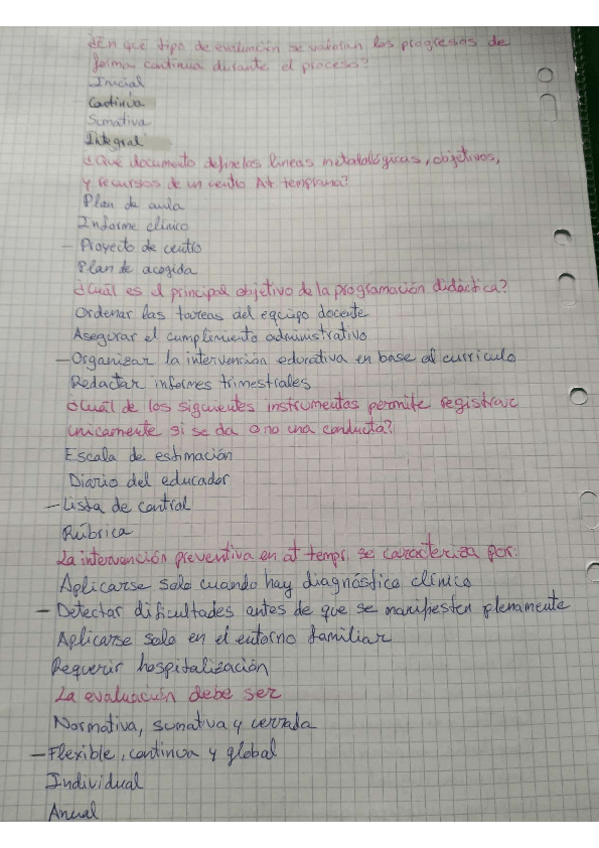 ¿En qué tipo de evaluación se valoran los progresos de
forma continua durante el proceso?
Inicial
Continua
Sumativa
Integral
¿Qué documento define los líneas metodológicas, objetivos,
y recursos de un centro At temprana?
Plan de aula
Informe clínico
- Proyecto de centro
Plan de acogida
¿Cuál es el principal objetivo de la programación didáctica?
Ordenar las tareas del equipo docente
Asegurar el cumplimiento administrativo
- Organizar la intervención educativa en base al currículo
Redactar informes trimestrales
¿Cuál de los siguientes instrumentos permite registrar
únicamente si se da o no una conducta?
Escala de estimación
Diario del educador
- Lista de control
Rúbrica
La intervención preventiva en at tempr. se caracteriza por:
Aplicarse solo cuando hay diagnóstico clínico
- Detectar dificultades antes de que se manifiesten plenamente
Aplicarse solo en el entorno familiar
Requerir hospitalización
La evaluación debe ser
Normativa, sumativa y cerrada
- Flexible, continua y global
Individual
Anual